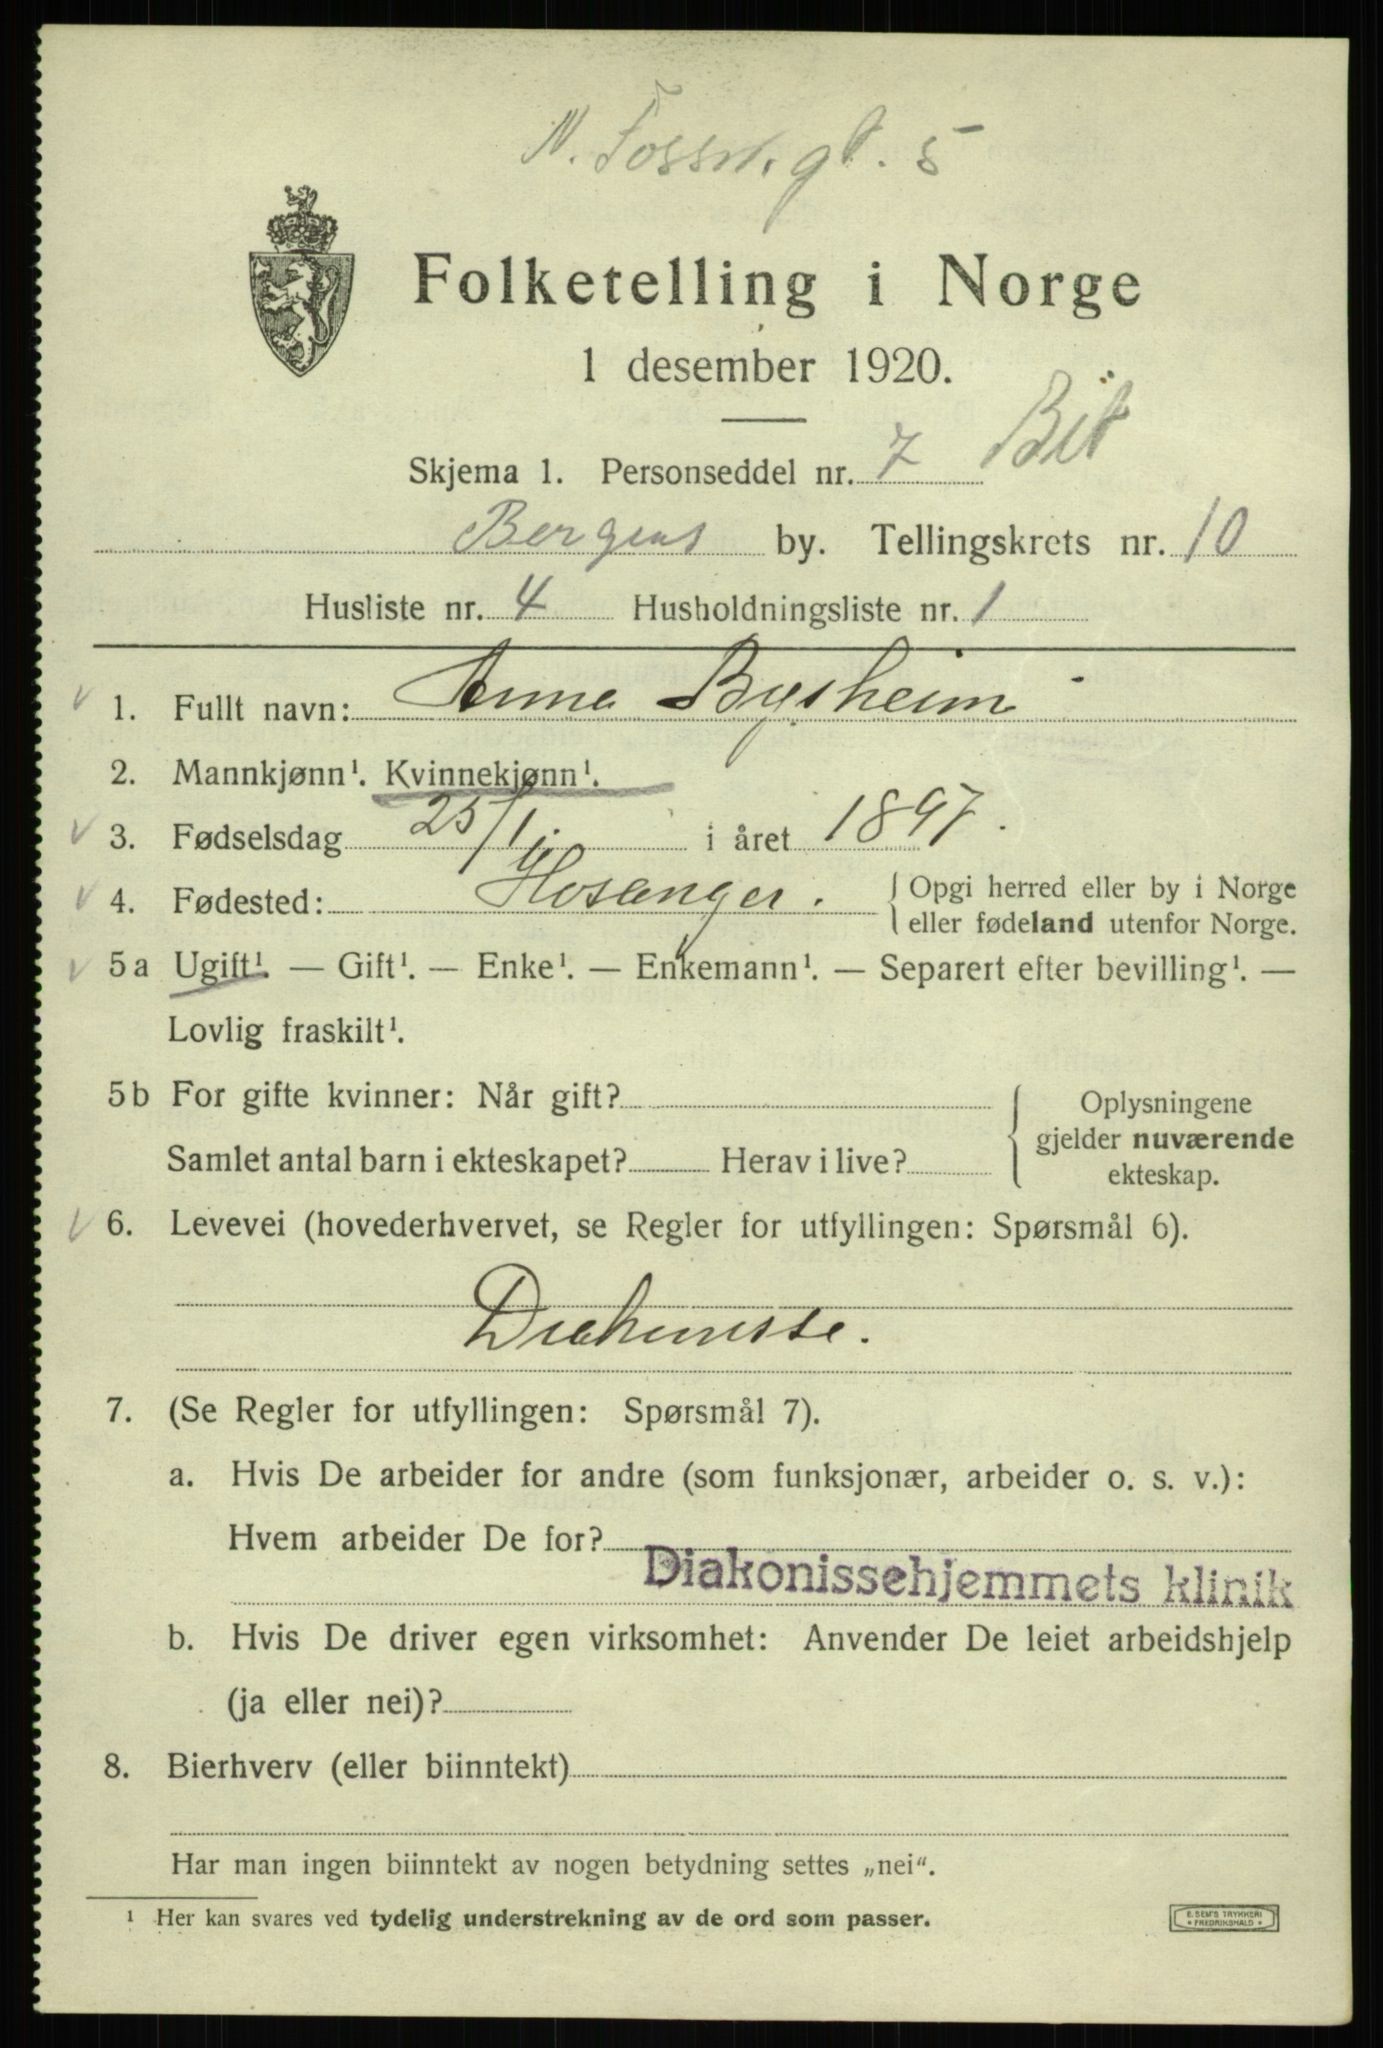 N. Fossw. gt. 5
Folketelling i Norge
1 desember 1920.
Skjema 1. Personseddel nr. 7
Bergens by. Tellingskrets nr. 10
Husliste nr. 4 Husholdningsliste nr. 1
1. Fullt navn: Anna Bysheim
2. Mannkjønn¹. Kvinnekjønn¹.
3. Fødselsdag 25/1. i året 1897.
4. Fødested: Hosanger. Opgi herred eller by i Norge
eller fødeland utenfor Norge.
5a Ugift¹. — Gift¹. — Enke¹. — Enkemann¹. — Separert efter bevilling¹. —
Lovlig fraskilt¹.
5b For gifte kvinner: Når gift?
Samlet antal barn i ekteskapet? Herav i live?
Oplysningene
gjelder nuværende
ekteskap.
6. Levevei (hovederhvervet, se Regler for utfyllingen: Spørsmål 6).
Diakonisse.
7. (Se Regler for utfyllingen: Spørsmål 7).
a. Hvis De arbeider for andre (som funksjonær, arbeider o. s. v.):
Hvem arbeider De for?
Diakonissehjemmets klinik
b. Hvis De driver egen virksomhet: Anvender De leiet arbeidshjelp
(ja eller nei)?
8. Bierhverv (eller biinntekt)
Har man ingen biinntekt av nogen betydning settes „nei“.
¹ Her kan svares ved tydelig understrekning av de ord som passer.
E. SEM'S TRYKKERI
• FREDRIKSHALD •